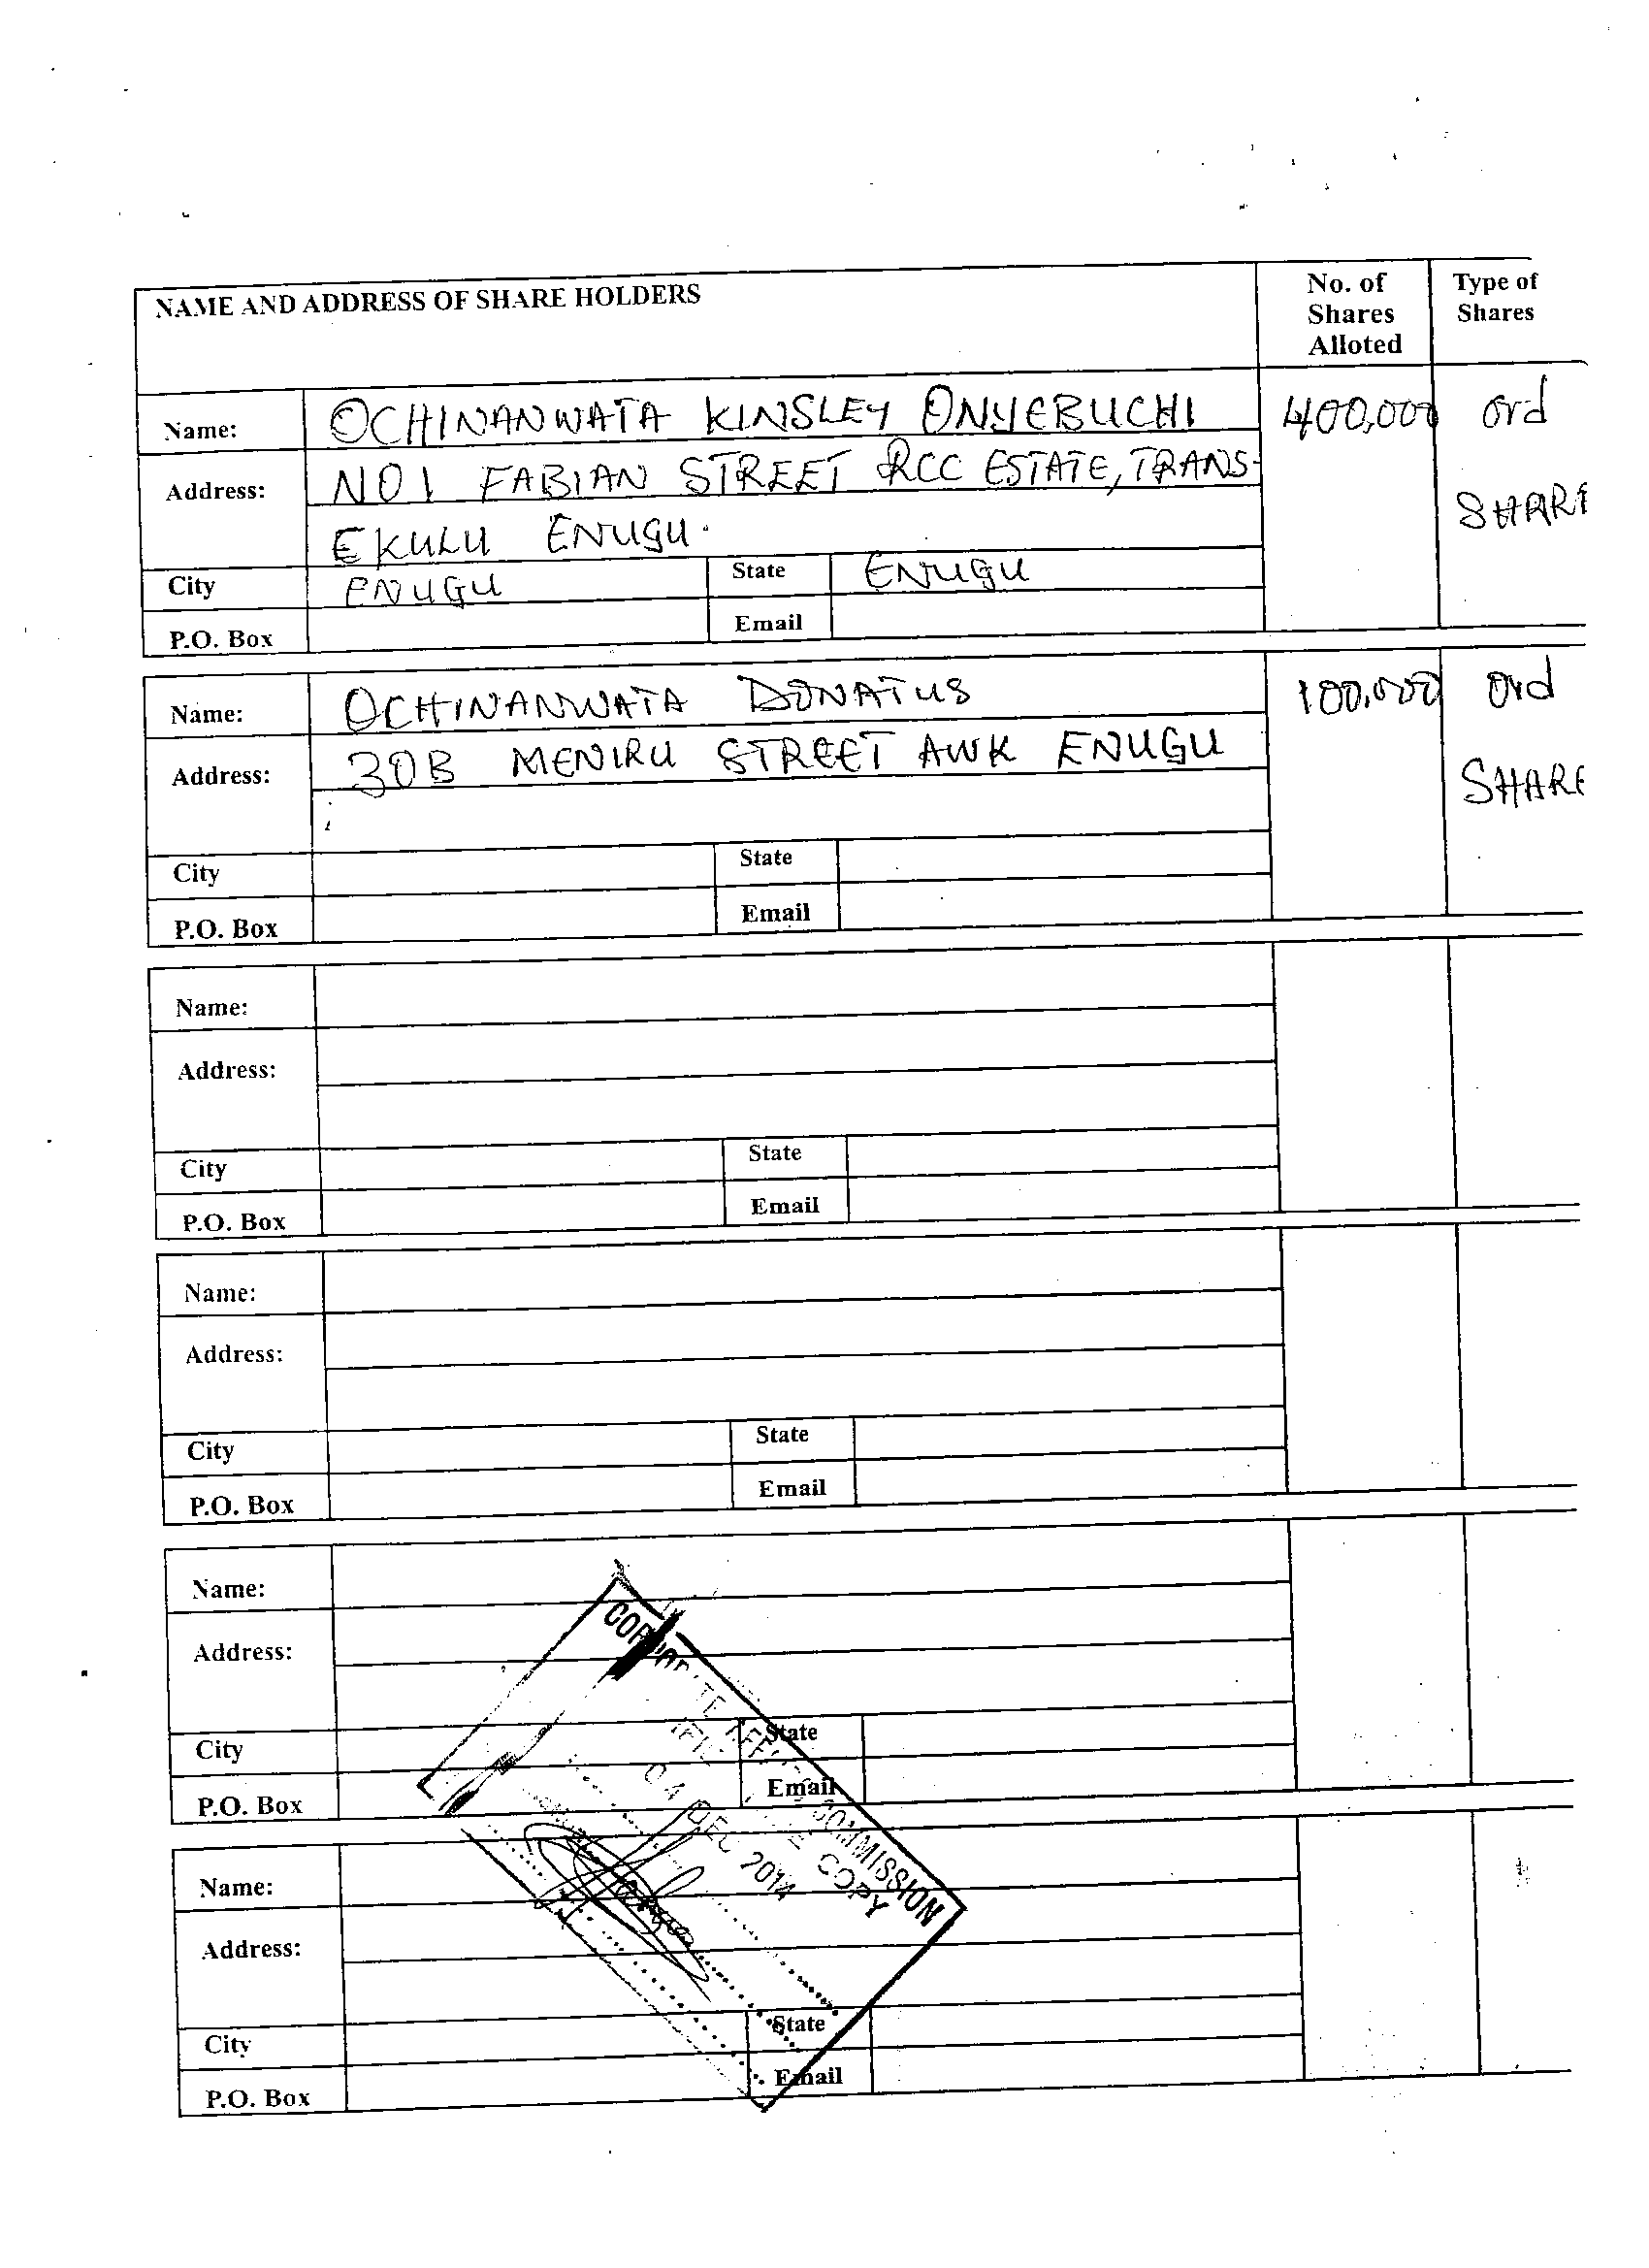 NAME AND ADDRESS OF SHARE HOLDERS
No. of Shares Alloted
Type of Shares
Name: OCHINANWATA KINSLEY ONYEBUCHI 400,000 ord
Address: NO1 FABIAN STREET RCC ESTATE, TRANS-
EKULU ENUGU. SHARE
City ENUGU State ENUGU
P.O. Box Email
Name: OCHINANWATA DONATUS 100,000 ord
Address: 30B MENIRU STREET AWK ENUGU
SHARE
City State
P.O. Box Email
Name:
Address:
City State
P.O. Box Email
Name:
Address:
City State
P.O. Box Email
Name:
Address:
City State
P.O. Box Email
CORPORATE AFFAIRS COMMISSION
COPY
04 DEC 2014
Name:
Address:
City State
P.O. Box Email